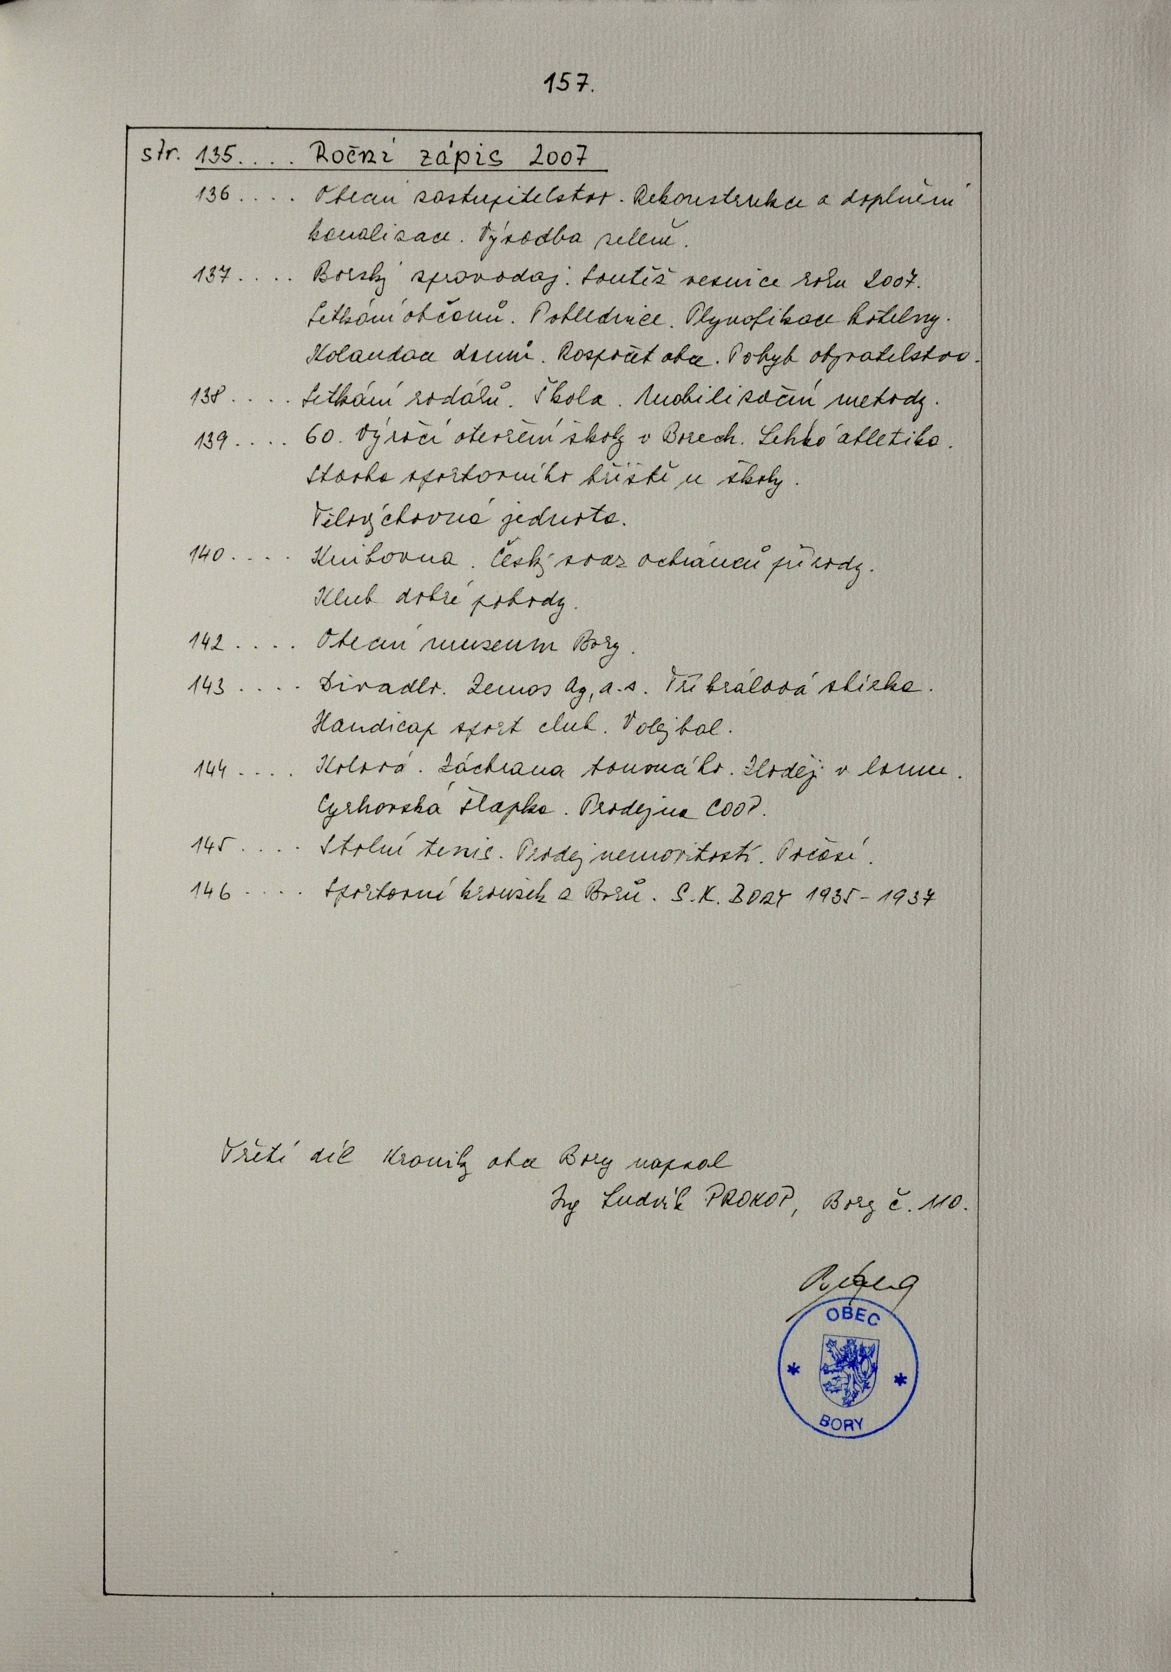 157.
str. 135.... Roční zápis 2007
136.... Obecní zastupitelstvo. Rekonstrukce a doplnění
kanalizace. Výsadba zeleně.
137.... Borský zpravodaj. Soutěž vesnice roku 2007.
Setkání občanů. Pohlednice. Plynofikace kotelny.
Kolaudace domů. Rozpočet obce. Pohyb obyvatelstva.
138.... Setkání rodáků. Škola. Mobilizační metody.
139.... 60. Výročí otevření školy v Borech. Lehká atletika.
Stavba sportovního hřiště u školy.
Tělovýchovná jednota.
140.... Knihovna. Český svaz ochránců přírody.
Klub dobré pohody.
142.... Obecní museum Bory.
143.... Divadlo. Zemos Ag, a.s. Tříkrálová sbírka.
Handicap sport club. Volejbal.
144.... Kolová. Záchrana tonoucího. Zloděj v lomu.
Cyrhovská šlapka. Prodejna COOP.
145.... Stolní tenis. Prodej nemovitostí. Počasí.
146.... Sportovní kroužek z Borů. S.K. BORY 1935-1937
Třetí díl Kroniky obce Bory napsal
Ing Ludvík PROKOP, Bory č. 110.
OBEC
BORY